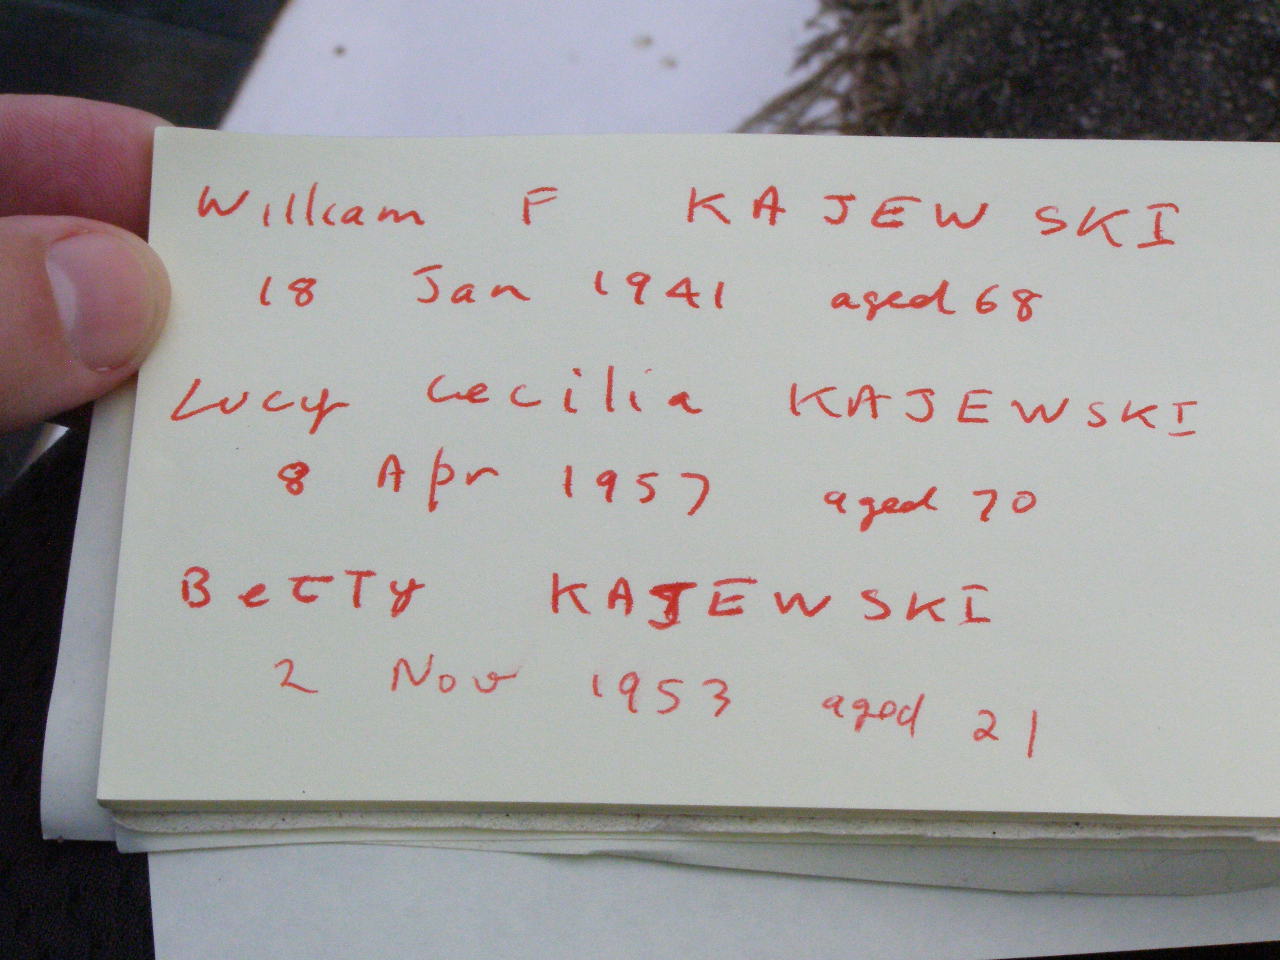 William F KAJEWSKI
18 Jan 1941 aged 68
Lucy Cecilia KAJEWSKI
8 Apr 1957 aged 70
Betty KAJEWSKI
2 Nov 1953 aged 21